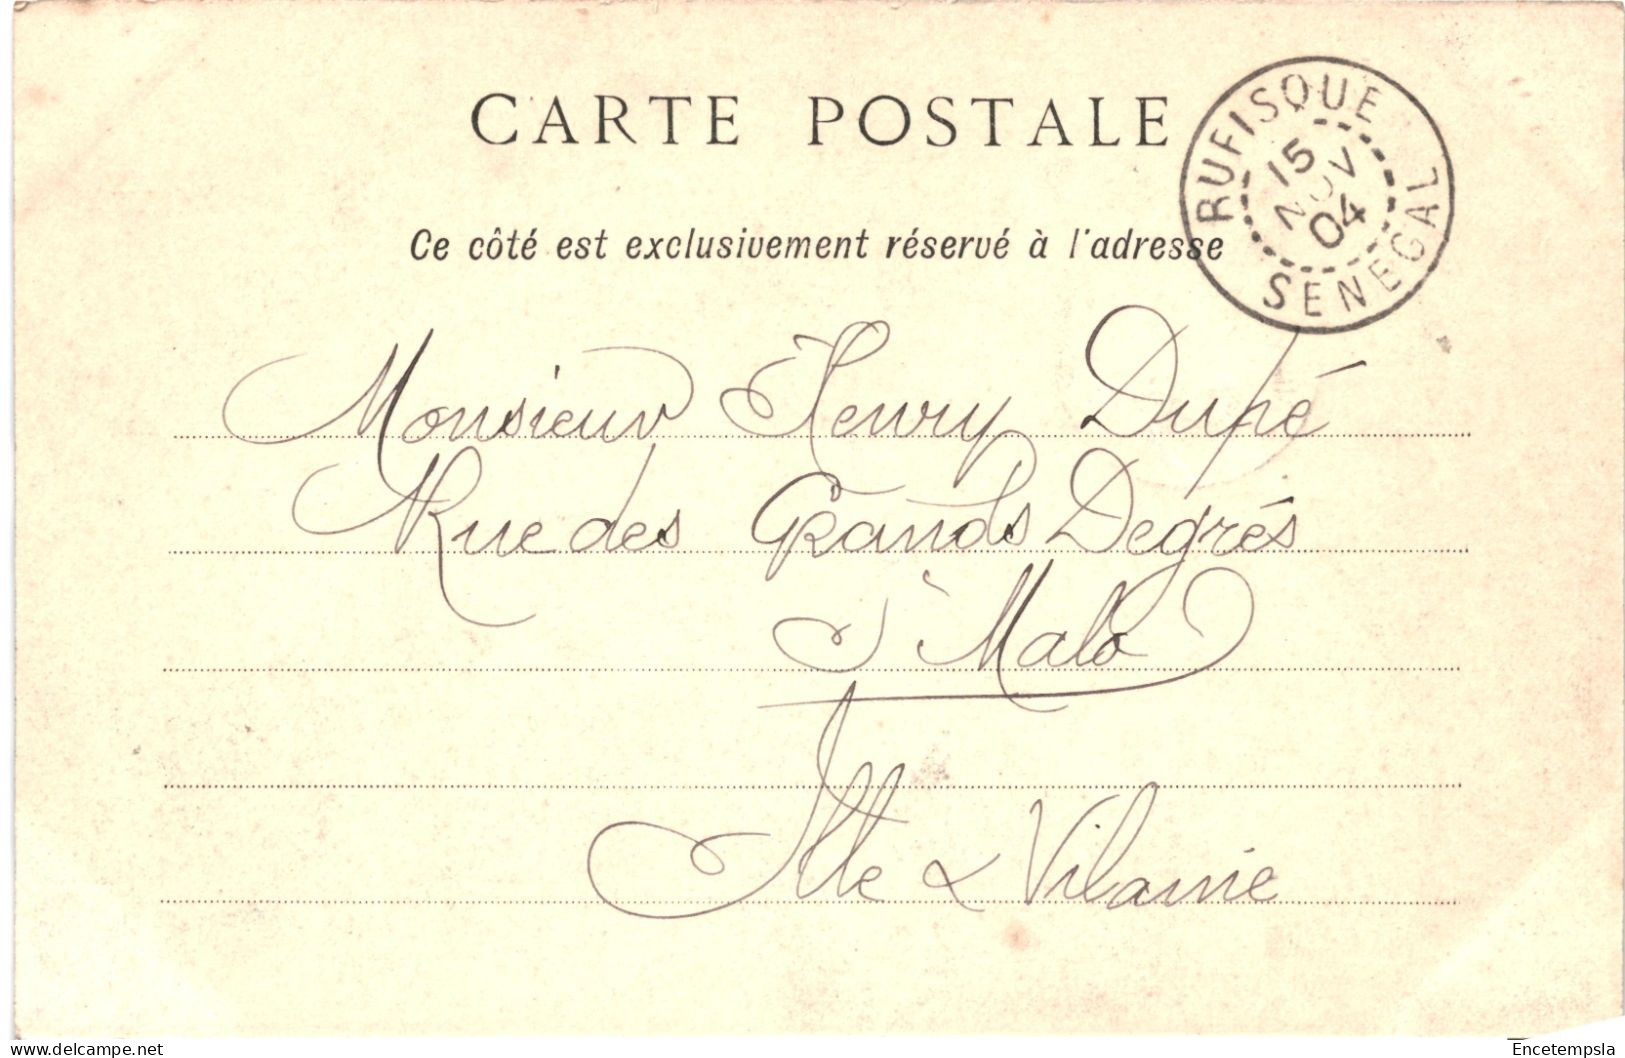 CARTE POSTALE
RUFISQUE
15
NOV
04
SENEGAL
Ce côté est exclusivement réservé à l'adresse
Monsieur Henry Dupé
Rue des Grands Degrés
St Malo
Ille & Vilaine
Delcampe.net
Encetempsla